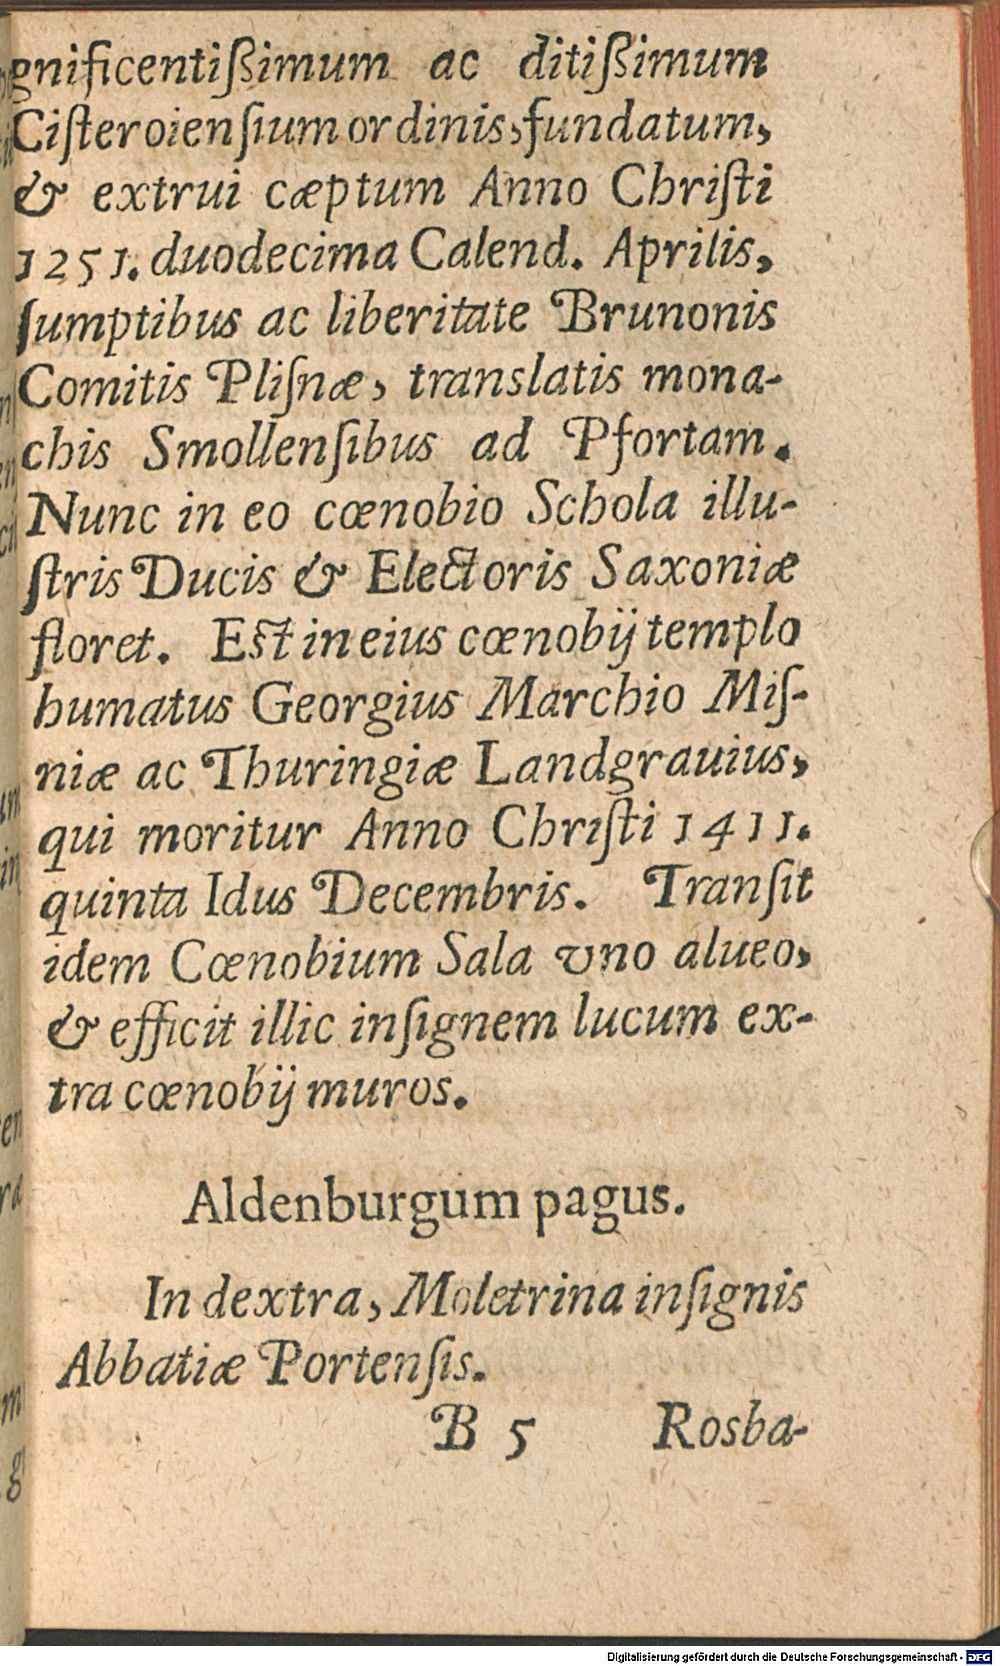 gnificentißimum ac ditißimum
Ciſteroienſium ordinis, fundatum,
& extrui cæptum Anno Chriſti
1251. duodecima Calend. Aprilis,
ſumptibus ac liberitate Brunonis
Comitis Pliſnæ, translatis mona-
chis Smollenſibus ad Pfortam.
Nunc in eo cœnobio Schola illu-
ſtris Ducis & Electoris Saxoniæ
floret. Eſt in eius cœnobij templo
humatus Georgius Marchio Miſ-
niæ ac Thuringiæ Landgrauius,
qui moritur Anno Chriſti 1411.
quinta Idus Decembris. Tranſit
idem Cœnobium Sala vno alueo,
& efficit illic inſignem lucum ex-
tra cœnobij muros.
Aldenburgum pagus.
In dextra, Moletrina inſignis
Abbatiæ Portenſis.
B 5 Rosba-
Digitalisierung gefördert durch die Deutsche Forschungsgemeinschaft - DFG